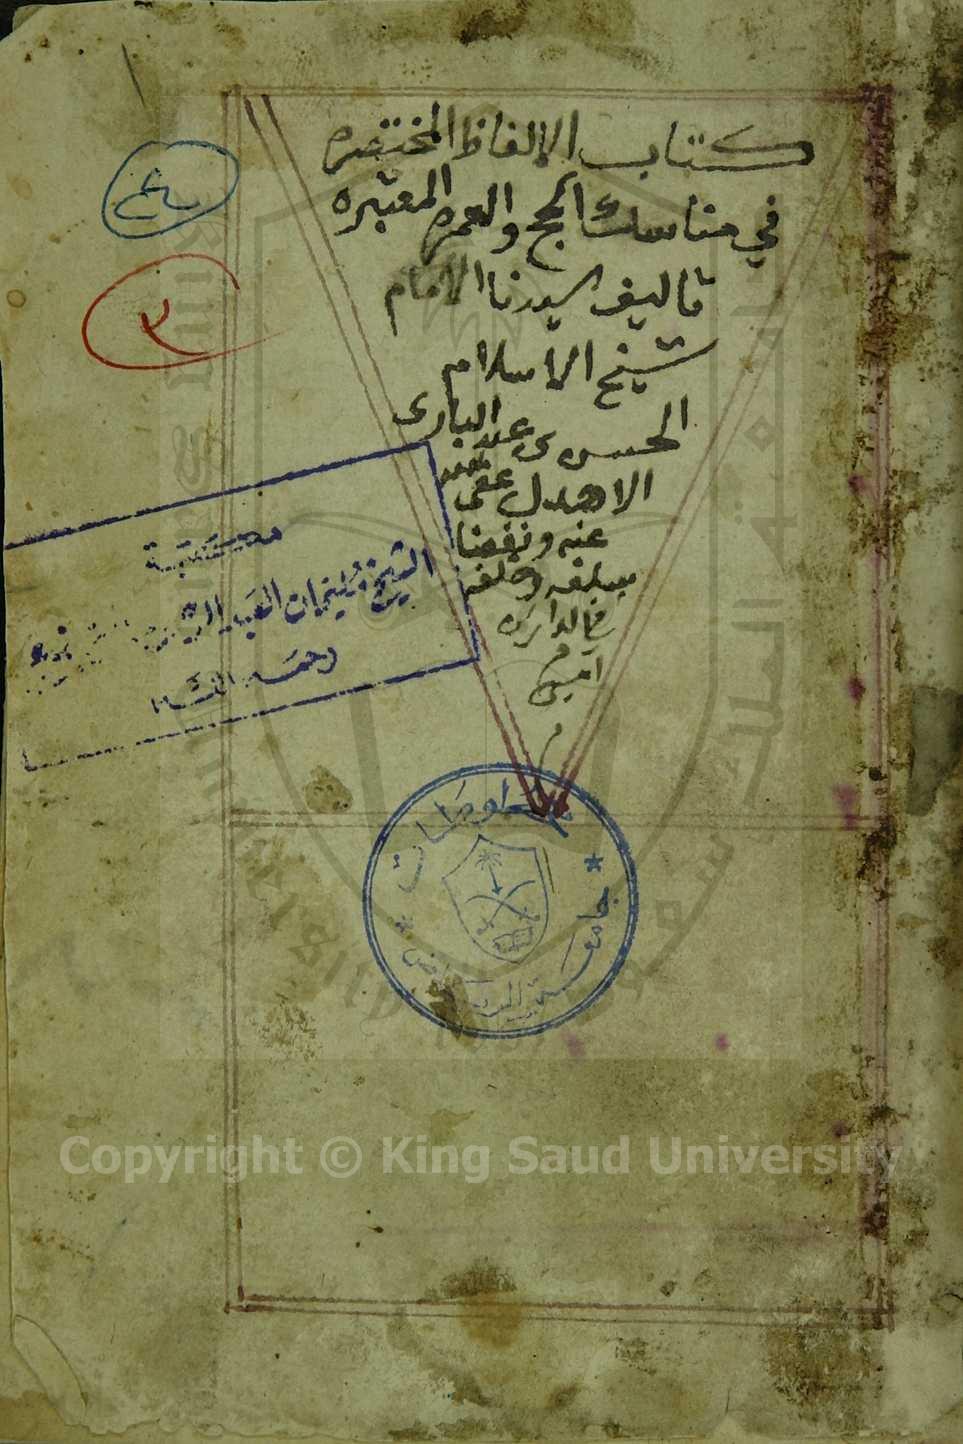 كتاب الالفاظ المختصره
في مناسك الحج والعمره المعتبره
تاليف سيدنا الامام
شيخ الاسلام
الحسن بن عبد البارى
الاهدل عفى
عنه ونفعنا
بسلفه وخلفه
في الدارين
امين
٤
٢
مكتبة
الشيخ سليمان
رحمه الله
مخطوطات
جامعة الرياض
Copyright © King Saud University